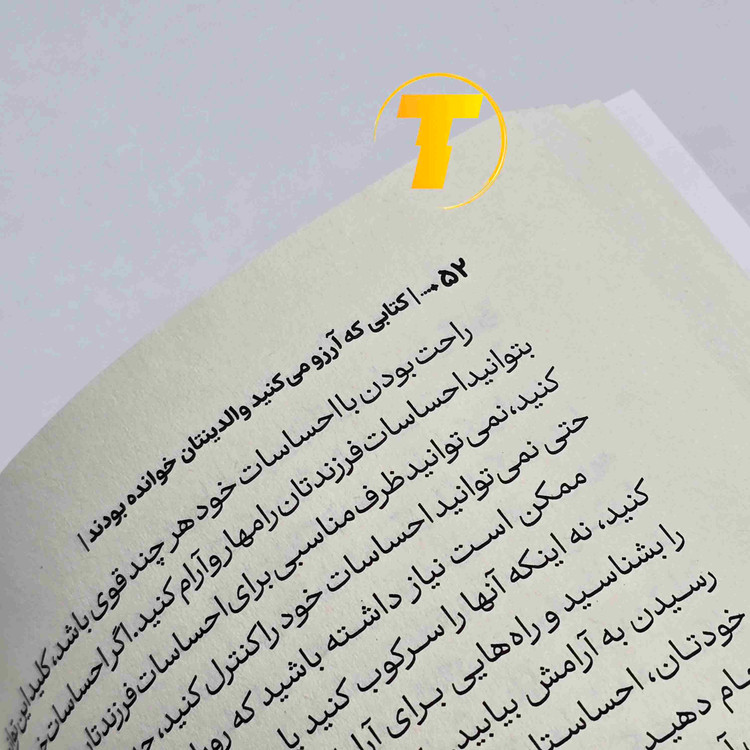 T
۵۲ ••• | کتابی که آرزو می‌کنید والدینتان خوانده بودند |
راحت بودن با احساسات خود هر چند قوی باشد، کلید این
بتوانید احساسات فرزندتان را مهار و آرام کنید. اگر احساسات
کنید، نمی‌توانید ظرف مناسبی برای احساسات فرزندتان
حتی نمی‌توانید احساسات خود را کنترل کنید،
ممکن است نیاز داشته باشید که
کنید، نه اینکه آنها را سرکوب کنید یا
را بشناسید و راه‌هایی برای
رسیدن به آرامش بیابید.
خودتان، احساستان
دهید